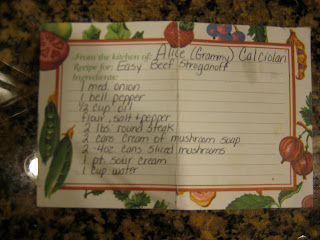 From the kitchen of: Alice (Grammy) Calciolari
Recipe for: Easy Beef Stroganoff
Ingredients:
1 med. onion
1 bell pepper
1/2 cup oil
flour, salt + pepper
2 lbs round steak
2 cans cream of mushroom soup
2 4oz cans sliced mushrooms
1 pt. sour cream
1 cup water